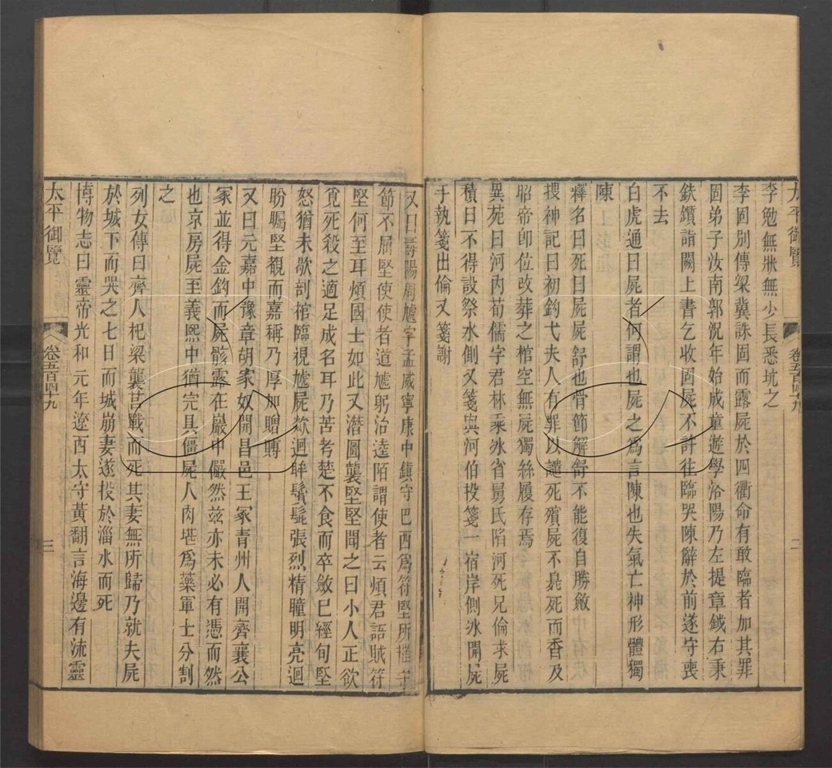 太平御覽　卷五百四十九　二
李勉無狀無少長悉坑之
李固別傳梁冀誅固而露屍於四衢命有敢臨者加其罪
固弟子汝南郭況年始成童遊學洛陽乃左提章鉞右秉
鈇鑕詣闕上書乞收固屍不許往臨哭陳辭於前遂守喪
不去
白虎通曰屍者何謂也屍之為言陳也失氣亡神形體獨
陳
釋名曰死曰屍屍舒也骨節解舒不能復自勝斂
搜神記曰初鈎弋夫人有罪以譴死殯屍不臭死而香及
昭帝卽位改葬之棺空無屍獨絲履存焉
異苑曰河內荀儒字君林乘冰省舅氏陷河死兄倫求屍
積日不得設祭水側又箋與河伯投箋一宿岸側冰開屍
于執箋出倫又箋謝
又曰壽陽周虓字孟威寧康中鎮守巴西為符堅所擒守
節不屈堅使使者道虓躬治逵陌謂使者云煩君語賊符
堅何至耳煩國士如此又潛圖襲堅堅聞之曰小人正欲
覓死殺之適足成名耳乃苦考楚不食而卒斂已經旬堅
怒猶未歇剖棺臨視虓屍欻迴眸鬢髭張烈精瞳明亮迴
盼矚堅覩而嘉稱乃厚加贈賻
又曰元嘉中豫章胡家奴開昌邑王冢青州人開齊襄公
冢並得金鈎而屍骸露在巖中儼然茲亦未必有憑而然
也京房屍至義熙中猶完具僵屍人肉堪為藥軍士分割
之
列女傳曰齊人杞梁襲莒戰而死其妻無所歸乃就夫屍
於城下而哭之七日而城崩妻遂投於淄水而死
博物志曰靈帝光和元年遼西太守黃翻言海邊有流靈
太平御覽　卷五百四十九　三